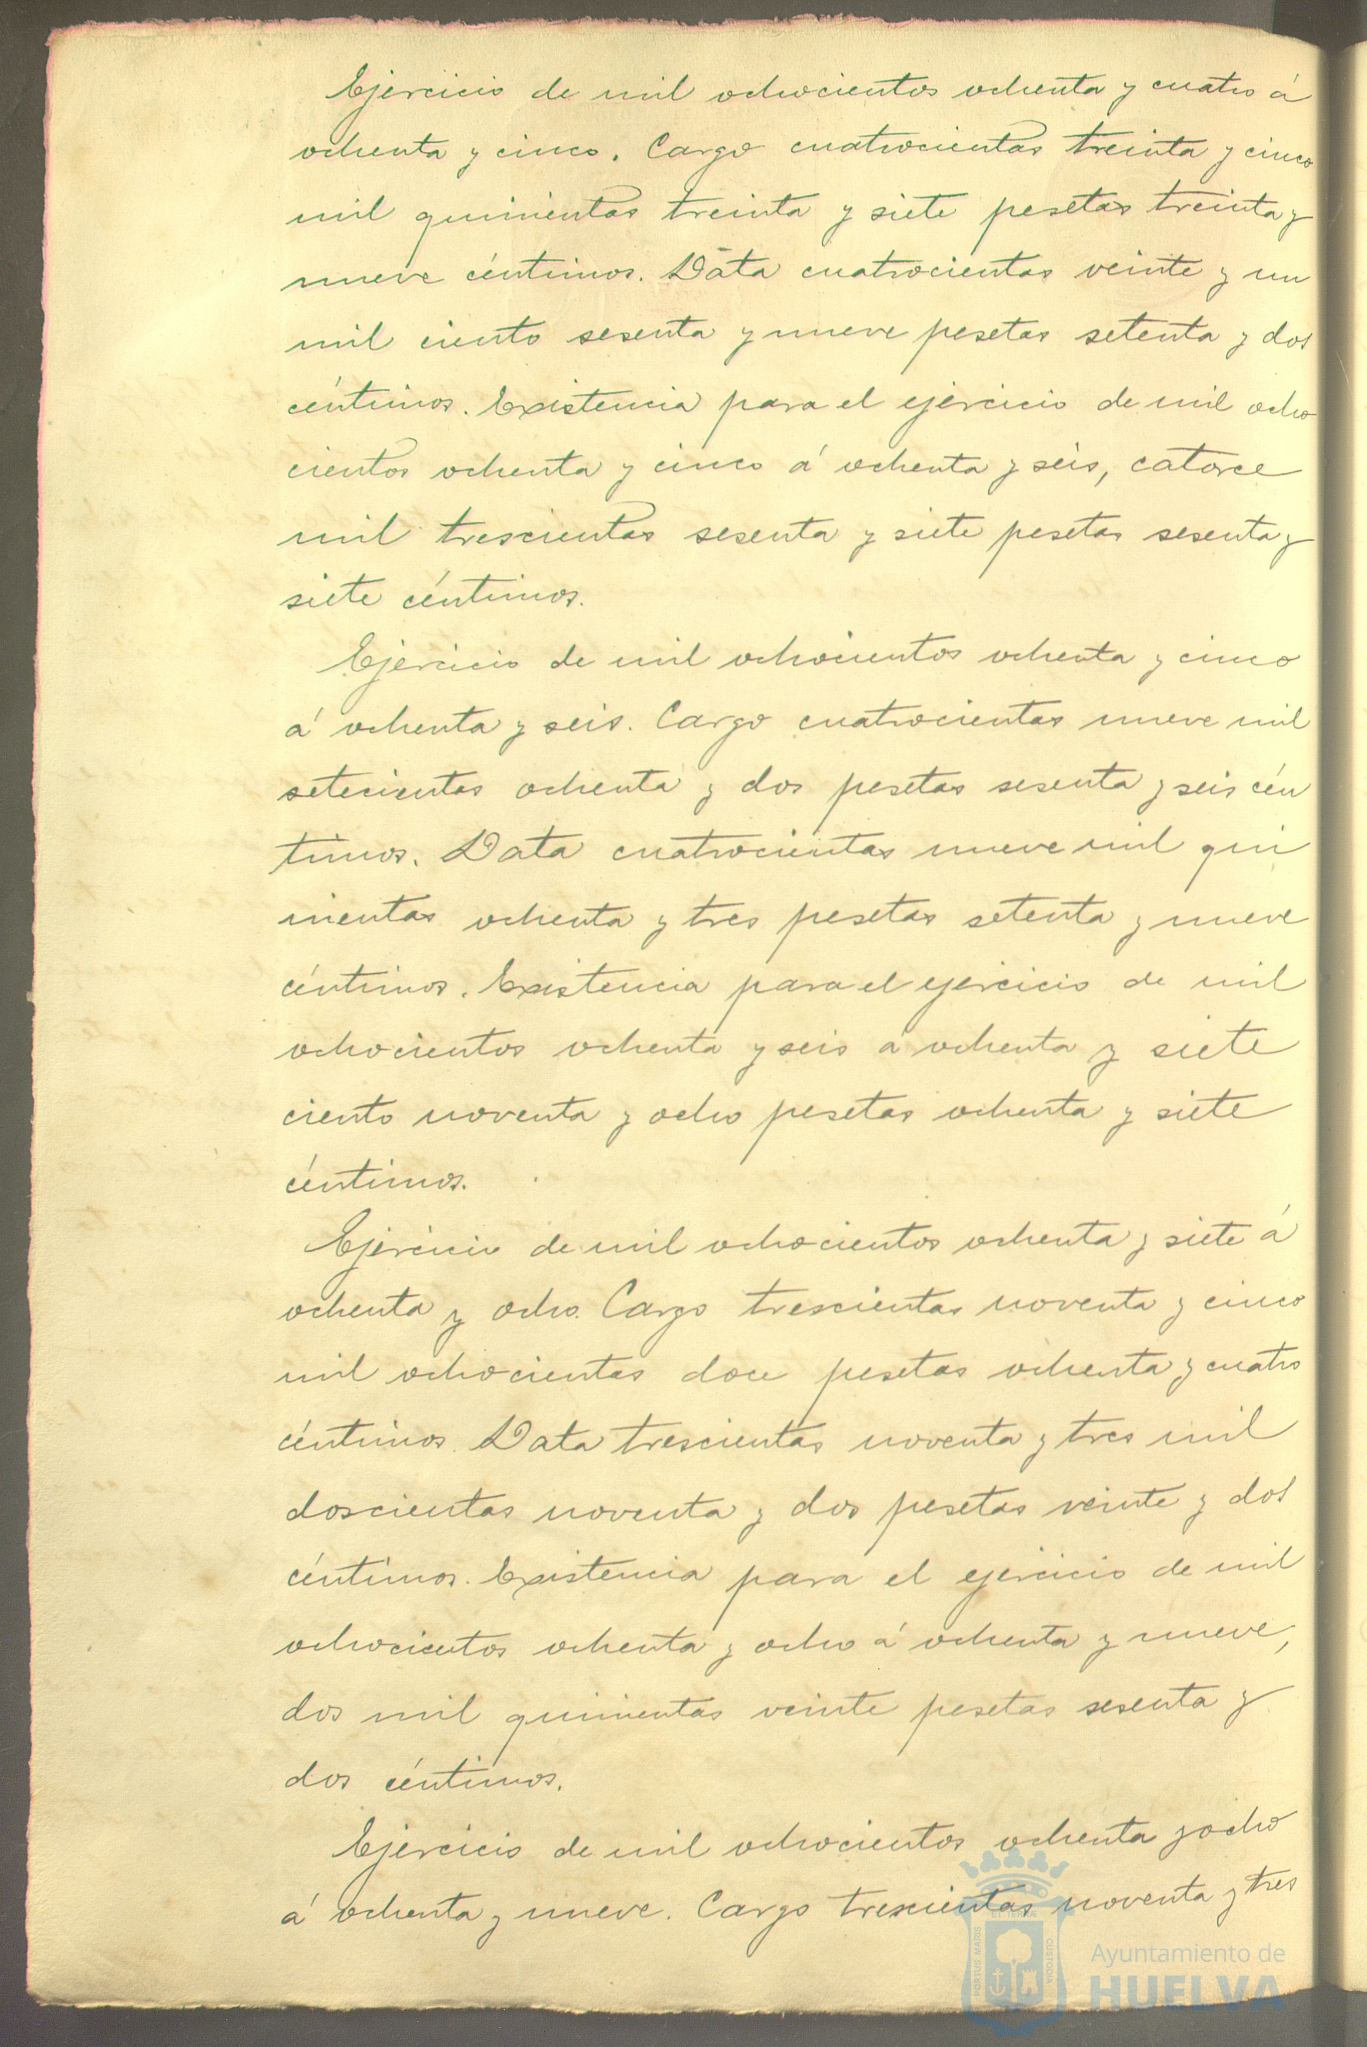 Ejercicio de mil ochocientos ochenta y cuatro á
ochenta y cinco. Cargo cuatrocientas treinta y cinco
mil quinientas treinta y siete pesetas treinta y
nueve céntimos. Data cuatrocientas veinte y un
mil ciento sesenta y nueve pesetas setenta y dos
céntimos. Existencia para el ejercicio de mil ocho
cientos ochenta y cinco á ochenta y seis, catorce
mil trescientas sesenta y siete pesetas sesenta y
siete céntimos.
Ejercicio de mil ochocientos ochenta y cinco
á ochenta y seis. Cargo cuatrocientas nueve mil
setecientas ochenta y dos pesetas sesenta y seis cén
timos. Data cuatrocientas nueve mil qui
nientas ochenta y tres pesetas setenta y nueve
céntimos. Existencia para el ejercicio de mil
ochocientos ochenta y seis a ochenta y siete
ciento noventa y ocho pesetas ochenta y siete
céntimos.
Ejercicio de mil ochocientos ochenta y siete á
ochenta y ocho. Cargo trescientas noventa y cinco
mil ochocientas doce pesetas ochenta y cuatro
céntimos. Data trescientas noventa y tres mil
doscientas noventa y dos pesetas veinte y dos
céntimos. Existencia para el ejercicio de mil
ochocientos ochenta y ocho á ochenta y nueve,
dos mil quinientas veinte pesetas sesenta y
dos céntimos.
Ejercicio de mil ochocientos ochenta y ocho
á ochenta y nueve. Cargo trescientas noventa y tres
PORTUS MARIS
CUSTODIA
Ayuntamiento de
HUELVA